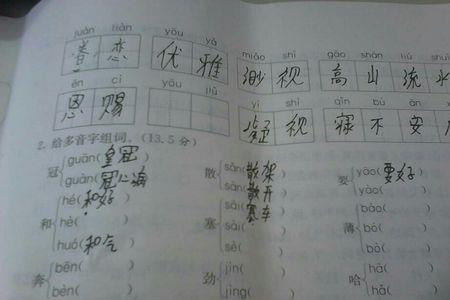 juàn liàn yōu yǎ miǎo shì gāo shān liú shuǐ
眷恋 优雅 渺视 高山流水
ēn cì yōu jiǔ yí shì qǐn bù ān
恩赐 疑视 寝不安
2. 给多音字组词。(13.5分)
冠 guān(皇冠) 散 sǎn(散架) 要 yāo(要好)
guàn(冠心病) sàn(散开) yào(
和 hé(和好) 塞 sài(塞车) 薄 báo(
hè( ) sāi( ) bó(
huó(和气) sè( ) bò(
奔 bēn( ) 劲 jìn( ) 哈 hā(
bèn( ) jìng( ) hǎ(